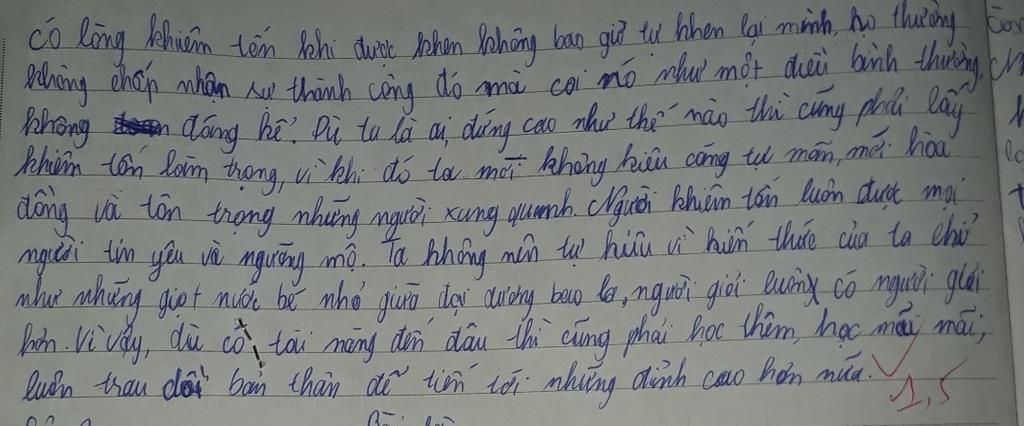 có lòng khiêm tốn khi được khen không bao giờ tự khen lại mình, họ thường
không chấp nhận sự thành công đó mà coi nó như một điều bình thường,
không đáng kể. Dù ta là ai, đứng cao như thế nào thì cũng phải lấy
khiêm tốn làm trọng, vì khi đó ta mới không kiêu căng tự mãn, mới hòa
đồng và tôn trọng những người xung quanh. Người khiêm tốn luôn được mọi
người tin yêu và ngưỡng mộ. Ta không nên tự kiêu vì kiến thức của ta chỉ
như những giọt nước bé nhỏ giữa đại dương bao la, người giỏi luôn có người giỏi
hơn. Vì vậy, dù có tài năng đến đâu thì cũng phải học thêm, học mãi mãi,
luôn trau dồi bản thân để tiến tới những đỉnh cao hơn nữa.
1,5